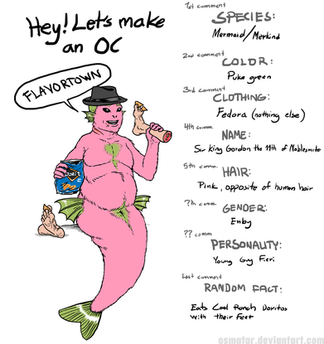 Hey! Let's make
an OC
FLAVORTOWN
1st comment
SPECIES:
Mermaid/Merkind
2nd comment
COLOR:
Puke green
3rd comment
CLOTHING:
Fedora (nothing else)
4th comm
NAME:
Sir King Gordon the 11th of Noblesmite
5th comm
HAIR:
Pink, opposite of human hair
?th comm
GENDER:
Enby
?? comm
PERSONALITY:
Young Guy Fieri
Last comment
RANDOM FACT:
Eats Cool Ranch Doritos
with their feet
osmatar.deviantart.com